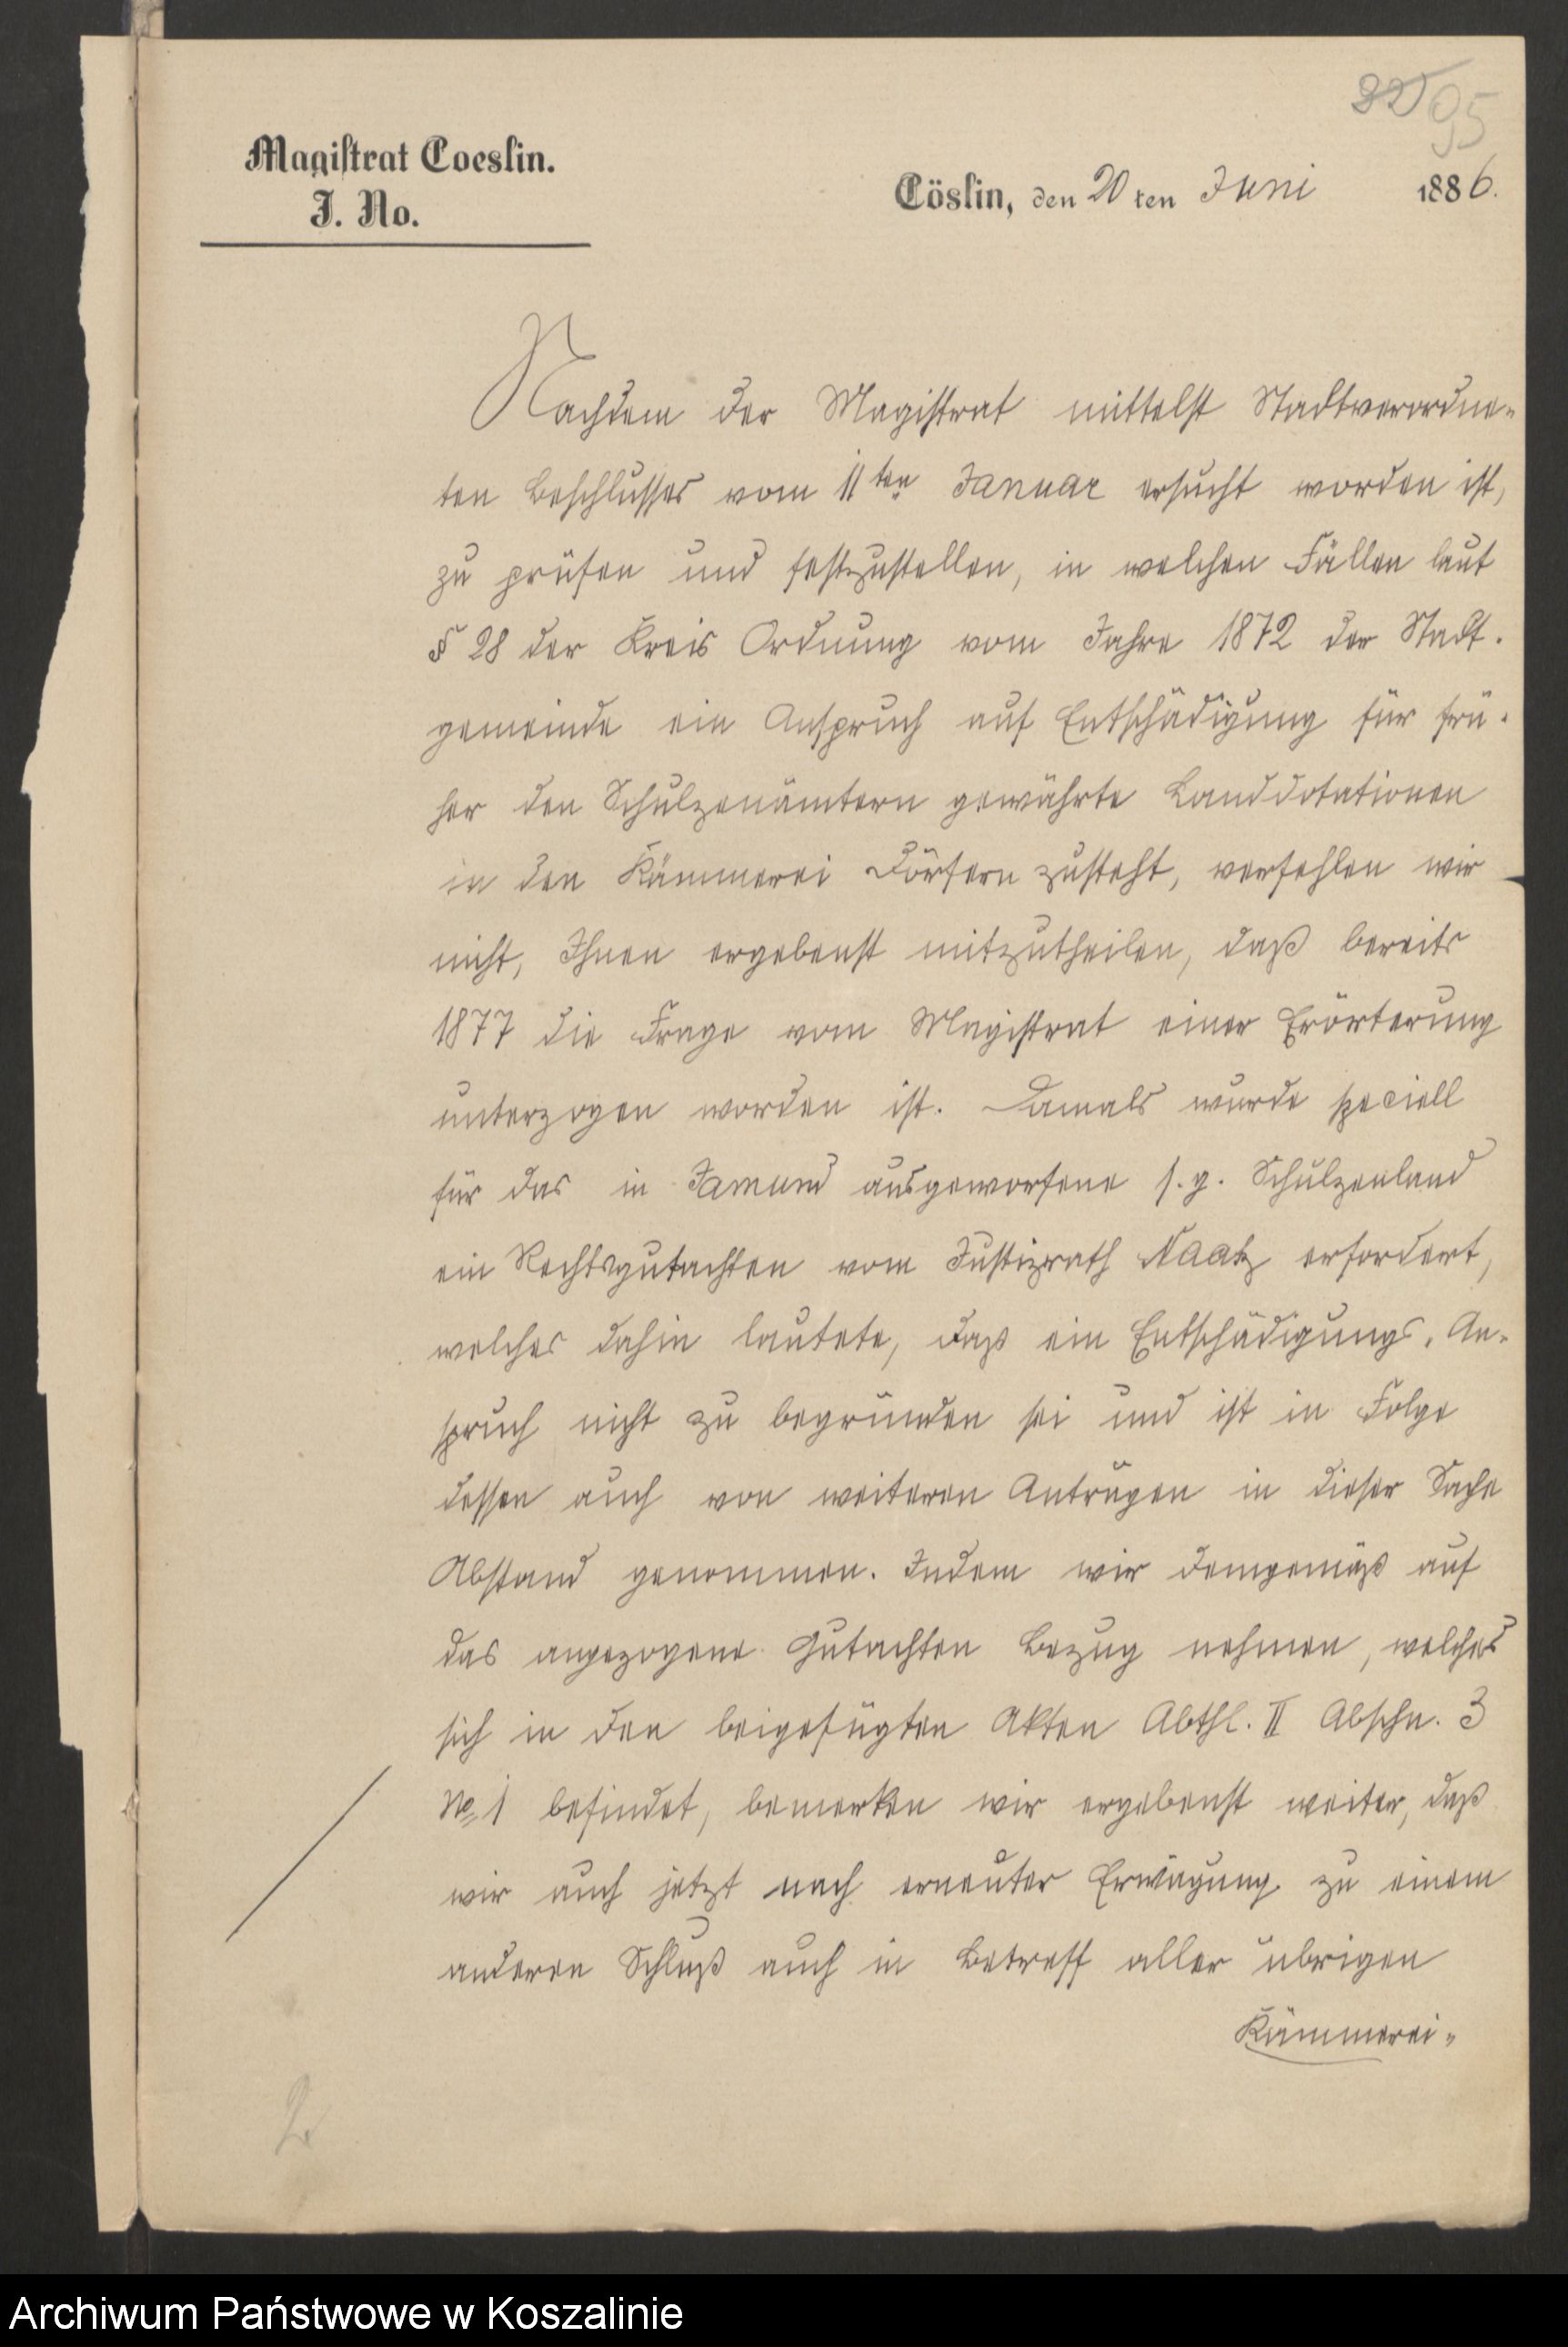 22 95
Magistrat Coeslin.
J. No.
Cöslin, den 20ten Juni 1886.
Nachdem der Magistrat mittelst Stadtverordne-
ten Beschlusses vom 11ten Januar ersucht worden ist,
zu prüfen und festzustellen, in welchen Fällen laut
§ 28 der Kreis Ordnung vom Jahre 1872 der Stadt-
gemeinde ein Anspruch auf Entschädigung für frü-
her den Schulzenämtern gewährte Landdotationen
in den Kämmerei Dörfern zusteht, verfehlen wir
nicht, Ihnen ergebenst mitzutheilen, daß bereits
1877 die Frage vom Magistrat einer Erörterung
unterzogen worden ist. Damals wurde speciell
für das in Jamund ausgeworfene s.g. Schulzenland
ein Rechtsgutachten vom Justizrath Naatz erfordert,
welches dahin lautete, daß ein Entschädigungs-An-
spruch nicht zu begründen sei und ist in Folge
dessen auch von weiteren Anträgen in dieser Sache
Abstand genommen. Indem wir demgemäß auf
das angezogene Gutachten Bezug nehmen, welches
sich in den beigefügten Akten Abthl. II Abschn. 3
No 1 befindet, bemerken wir ergebenst weiter, daß
wir auch jetzt nach erneuter Erwägung zu einem
anderen Schluß auch in Betreff aller übrigen
Kämmerei-
2
Archiwum Państwowe w Koszalinie